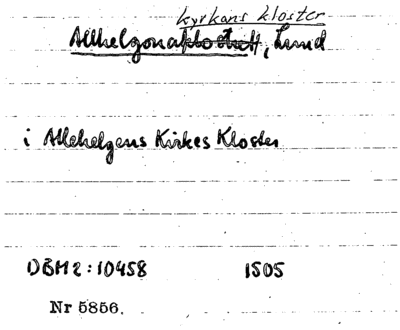 kyrkans kloster
Allhelgonaklostret, Lund
i Allehelgens Kirkes Kloster
DBM2:10458 1505
Nr 5856.